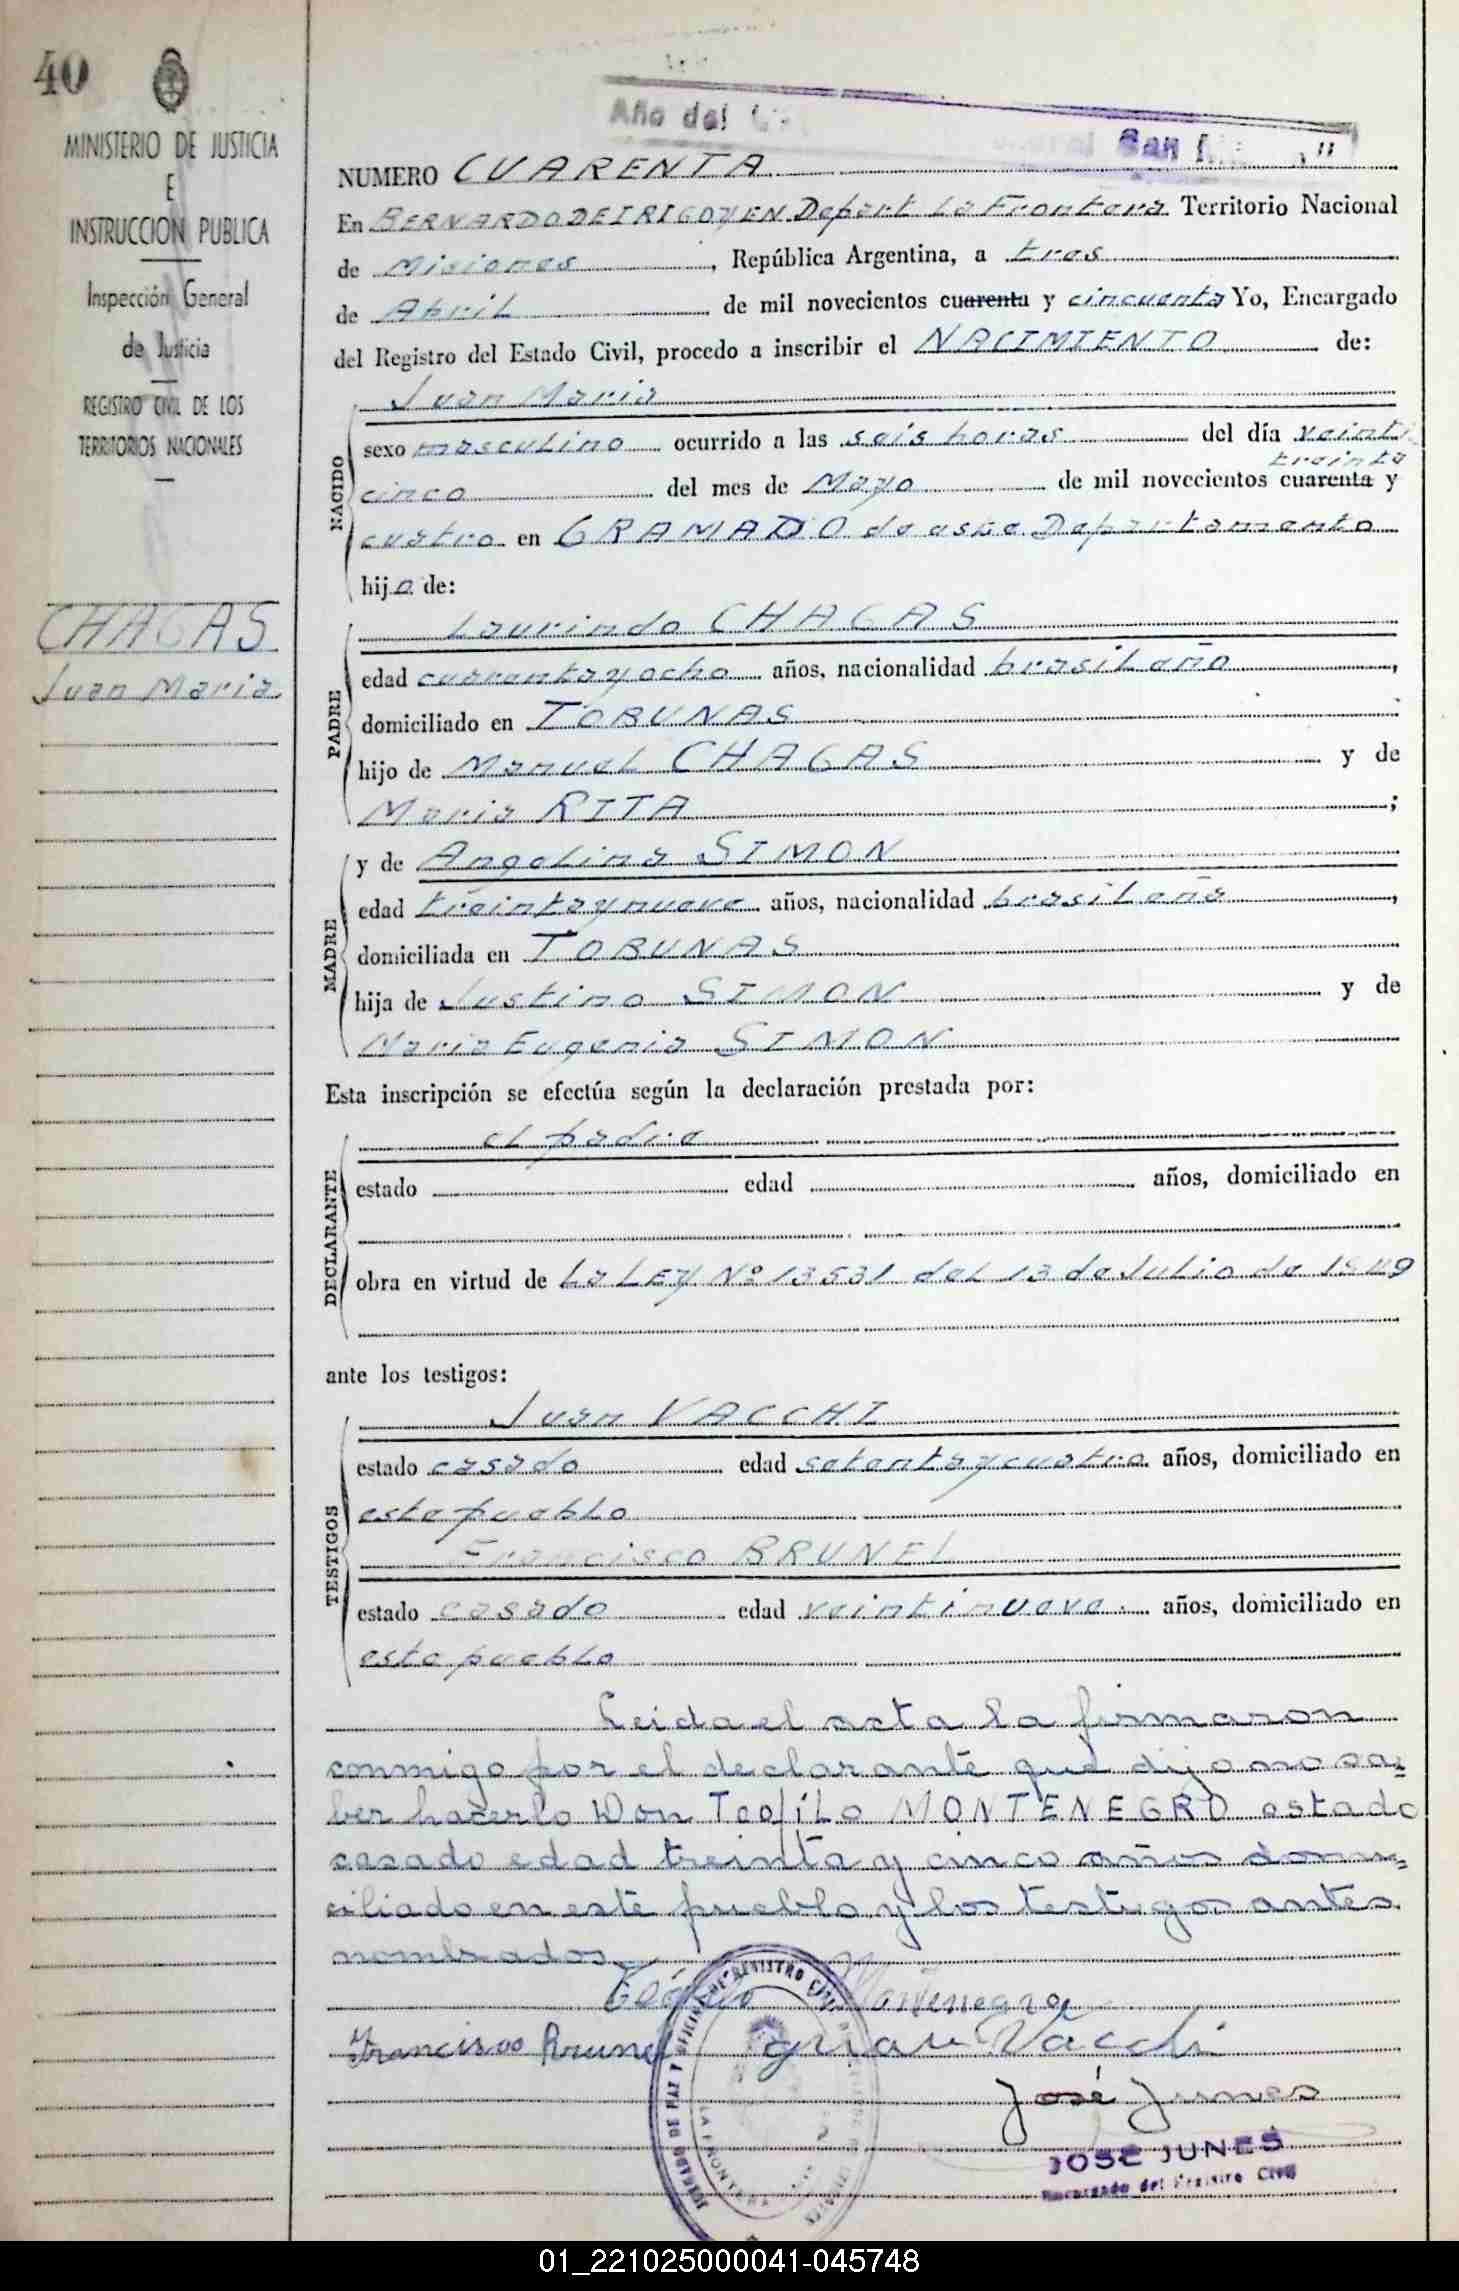 40
MINISTERIO DE JUSTICIA
E
INSTRUCCION PUBLICA
Inspección General
de Justicia
REGISTRO CIVIL DE LOS
TERRITORIOS NACIONALES
CHAGAS
Juan Maria
Año del
San
NUMERO CUARENTA
En BERNARDO DE IRIGOYEN Depart La Frontera Territorio Nacional
de Misiones, República Argentina, a tres
de Abril de mil novecientos cuarenta y cincuenta Yo, Encargado
del Registro del Estado Civil, procedo a inscribir el NACIMIENTO de:
Juan Maria
NACIDO
sexo masculino ocurrido a las seis horas del día veinti
treinta
cinco del mes de Mayo de mil novecientos cuarenta y
cuatro en GRAMADO de este Departamento
hijo de:
PADRE
Laurindo CHAGAS
edad cuarenta y ocho años, nacionalidad brasileño,
domiciliado en TOBUNAS
hijo de Manuel CHAGAS y de
Maria RITA;
MADRE
y de Angelina SIMON
edad treinta y nueve años, nacionalidad brasileña,
domiciliada en TOBUNAS
hija de Justino SIMON y de
Maria Eugenia SIMON
Esta inscripción se efectúa según la declaración prestada por:
DECLARANTE
el padre
estado edad años, domiciliado en
obra en virtud de La LEY Nº 13531 del 13 de Julio de 1949
ante los testigos:
TESTIGOS
Juan VACCHI
estado casado edad setenta y cuatro años, domiciliado en
este pueblo
Francisco BRUNEL
estado casado edad veintinueve años, domiciliado en
este pueblo
Leida el acta la firmaron
conmigo por el declarante que dijo no sa=
ber hacerlo Don Teofilo MONTENEGRO estado
casado edad treinta y cinco años domi=
ciliado en este pueblo y los testigos antes
nombrados
Teófilo Montenegro
Francisco Brunel Juan Vacchi
José Junes
JOSE JUNES
Encargado del Registro Civil
JUZGADO DE PAZ Y OFICINA DE REGISTRO CIVIL
LA FRONTERA
01_221025000041-045748